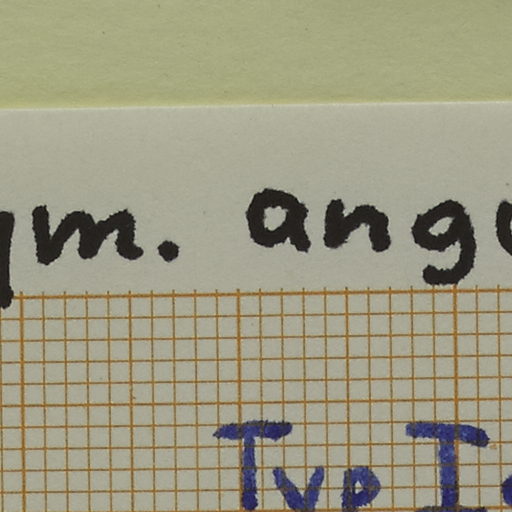 ym. angu
Typ Ia